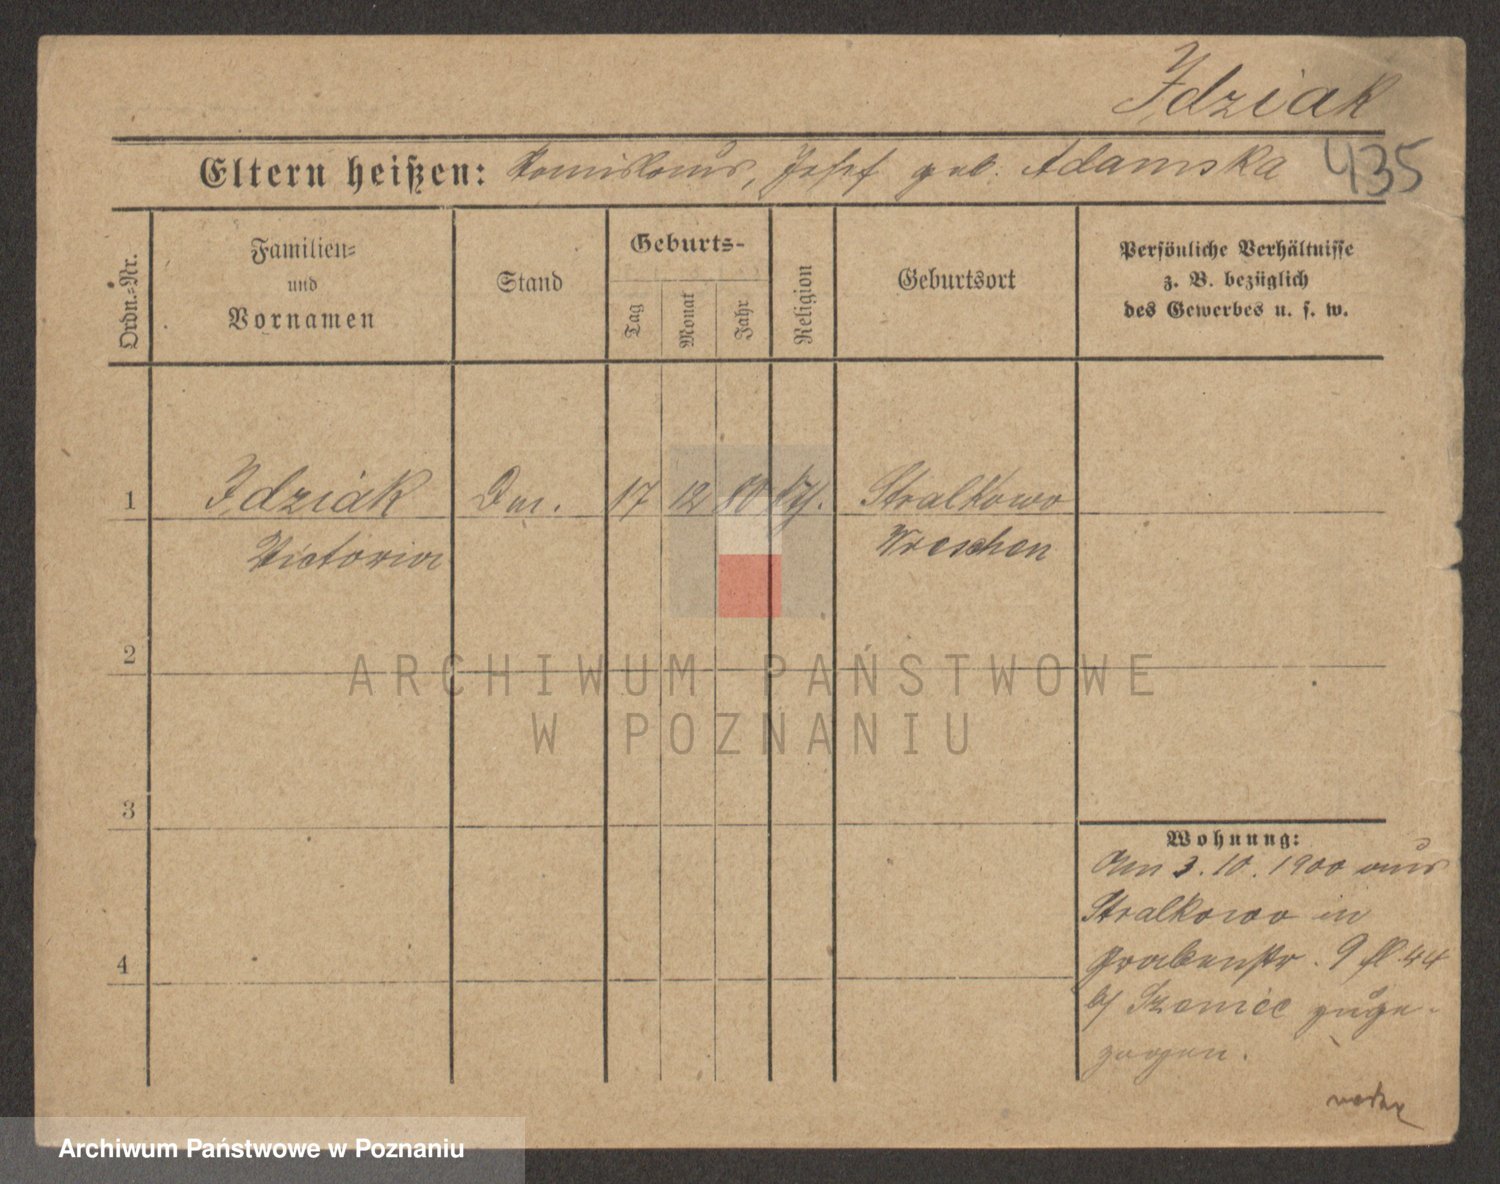 Idziak
435
Eltern heißen: Stanislaus, Josef geb. Adamska
Ordn.-Nr.
Familien-
und
Vornamen
Stand
Geburts-
Tag
Monat
Jahr
Religion
Geburtsort
Persönliche Verhältnisse
z. B. bezüglich
des Gewerbes u. s. w.
1
Idziak
17
12
80
Stralkowo
Victoria
Wreschen
2
ARCHIWUM PAŃSTWOWE
W POZNANIU
3
4
Wohnung:
Am 3.10.1900 aus
Stralkowo in
Grabenstr. 9
b/ zuge-
zogen.
Archiwum Państwowe w Poznaniu